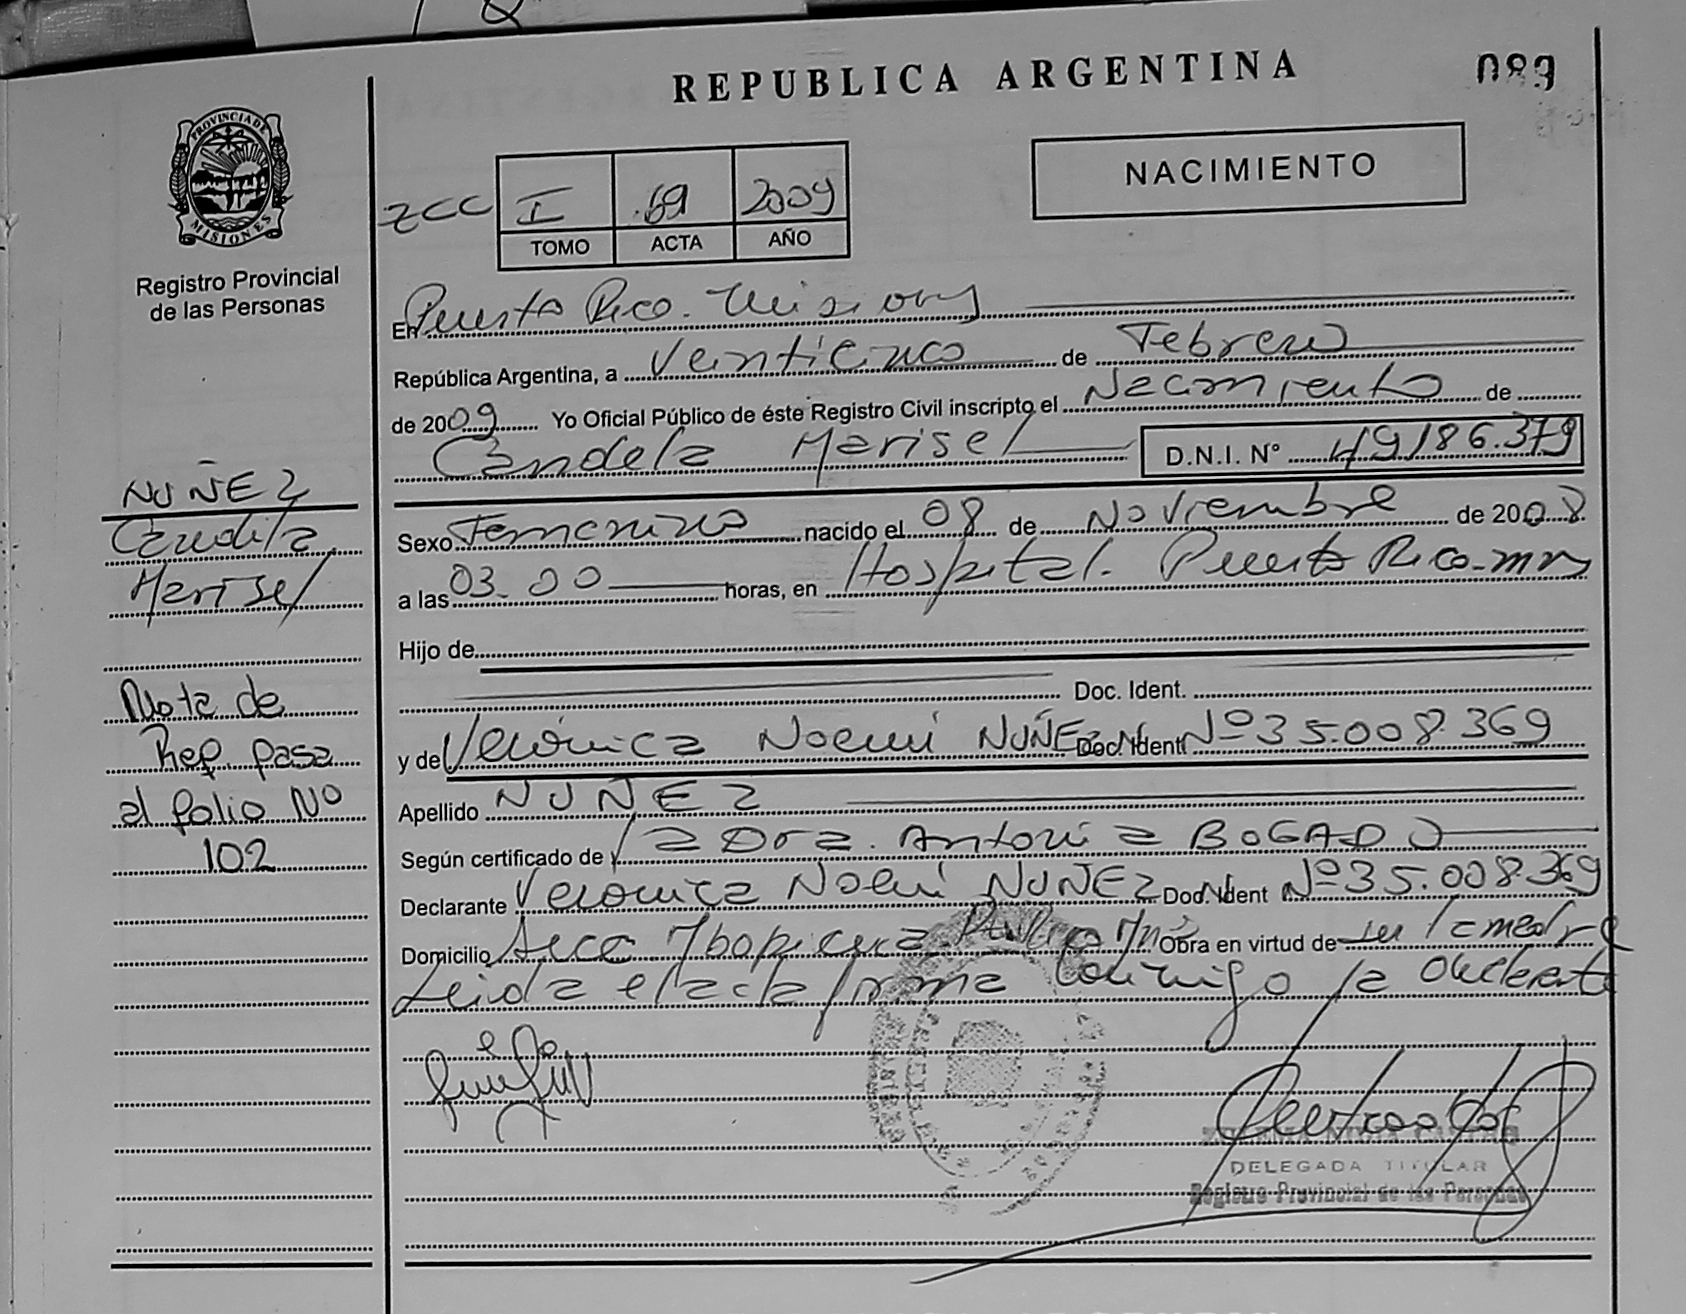 REPUBLICA ARGENTINA
089
PROVINCIA DE
MISIONES
Registro Provincial
de las Personas
NACIMIENTO
ZCC I 69 2009
TOMO ACTA AÑO
En Puerto Rico. Misiones
República Argentina, a Veinticinco de Febrero
de 2009 Yo Oficial Público de éste Registro Civil inscripto el Nacimiento de
Candela Marisel D.N.I. Nº 49186.379
NUÑEZ
Candela
Marisel
Sexo Femenino nacido el 08 de Noviembre de 2008
a las 03.00 horas, en Hospital. Puerto Rico-mnes
Hijo de
Doc. Ident.
Nota de
Ref. pasa
al folio Nº
102
y de Verónica Noemi NUÑEZ Doc. Ident Nº 35.008.369
Apellido NUÑEZ
Según certificado de la Dra. Antonia BOGADO
Declarante Veronica Noemi NUÑEZ Doc. Ident Nº 35.008.369
Domicilio Obra en virtud de ser la madre
Leida el acta firma conmigo la declarante
DELEGADA TITULAR
Registro Provincial de las Personas